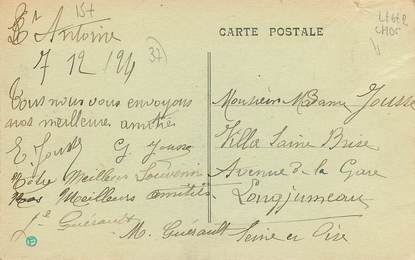 15t
St Antoine
7 12 1924
37
Tous nous vous envoyons
nos meilleures amitiés
E. Jousse G. Jousse
Notre Meilleur Souvenir
Nos Meilleurs amitiés
Guérault
M. Guérault
CARTE POSTALE
LEGER
CHOC
Monsieur Madame Jousse
Villa Saine Brise
Avenue de la Gare
Longjumeau
Seine et Oise